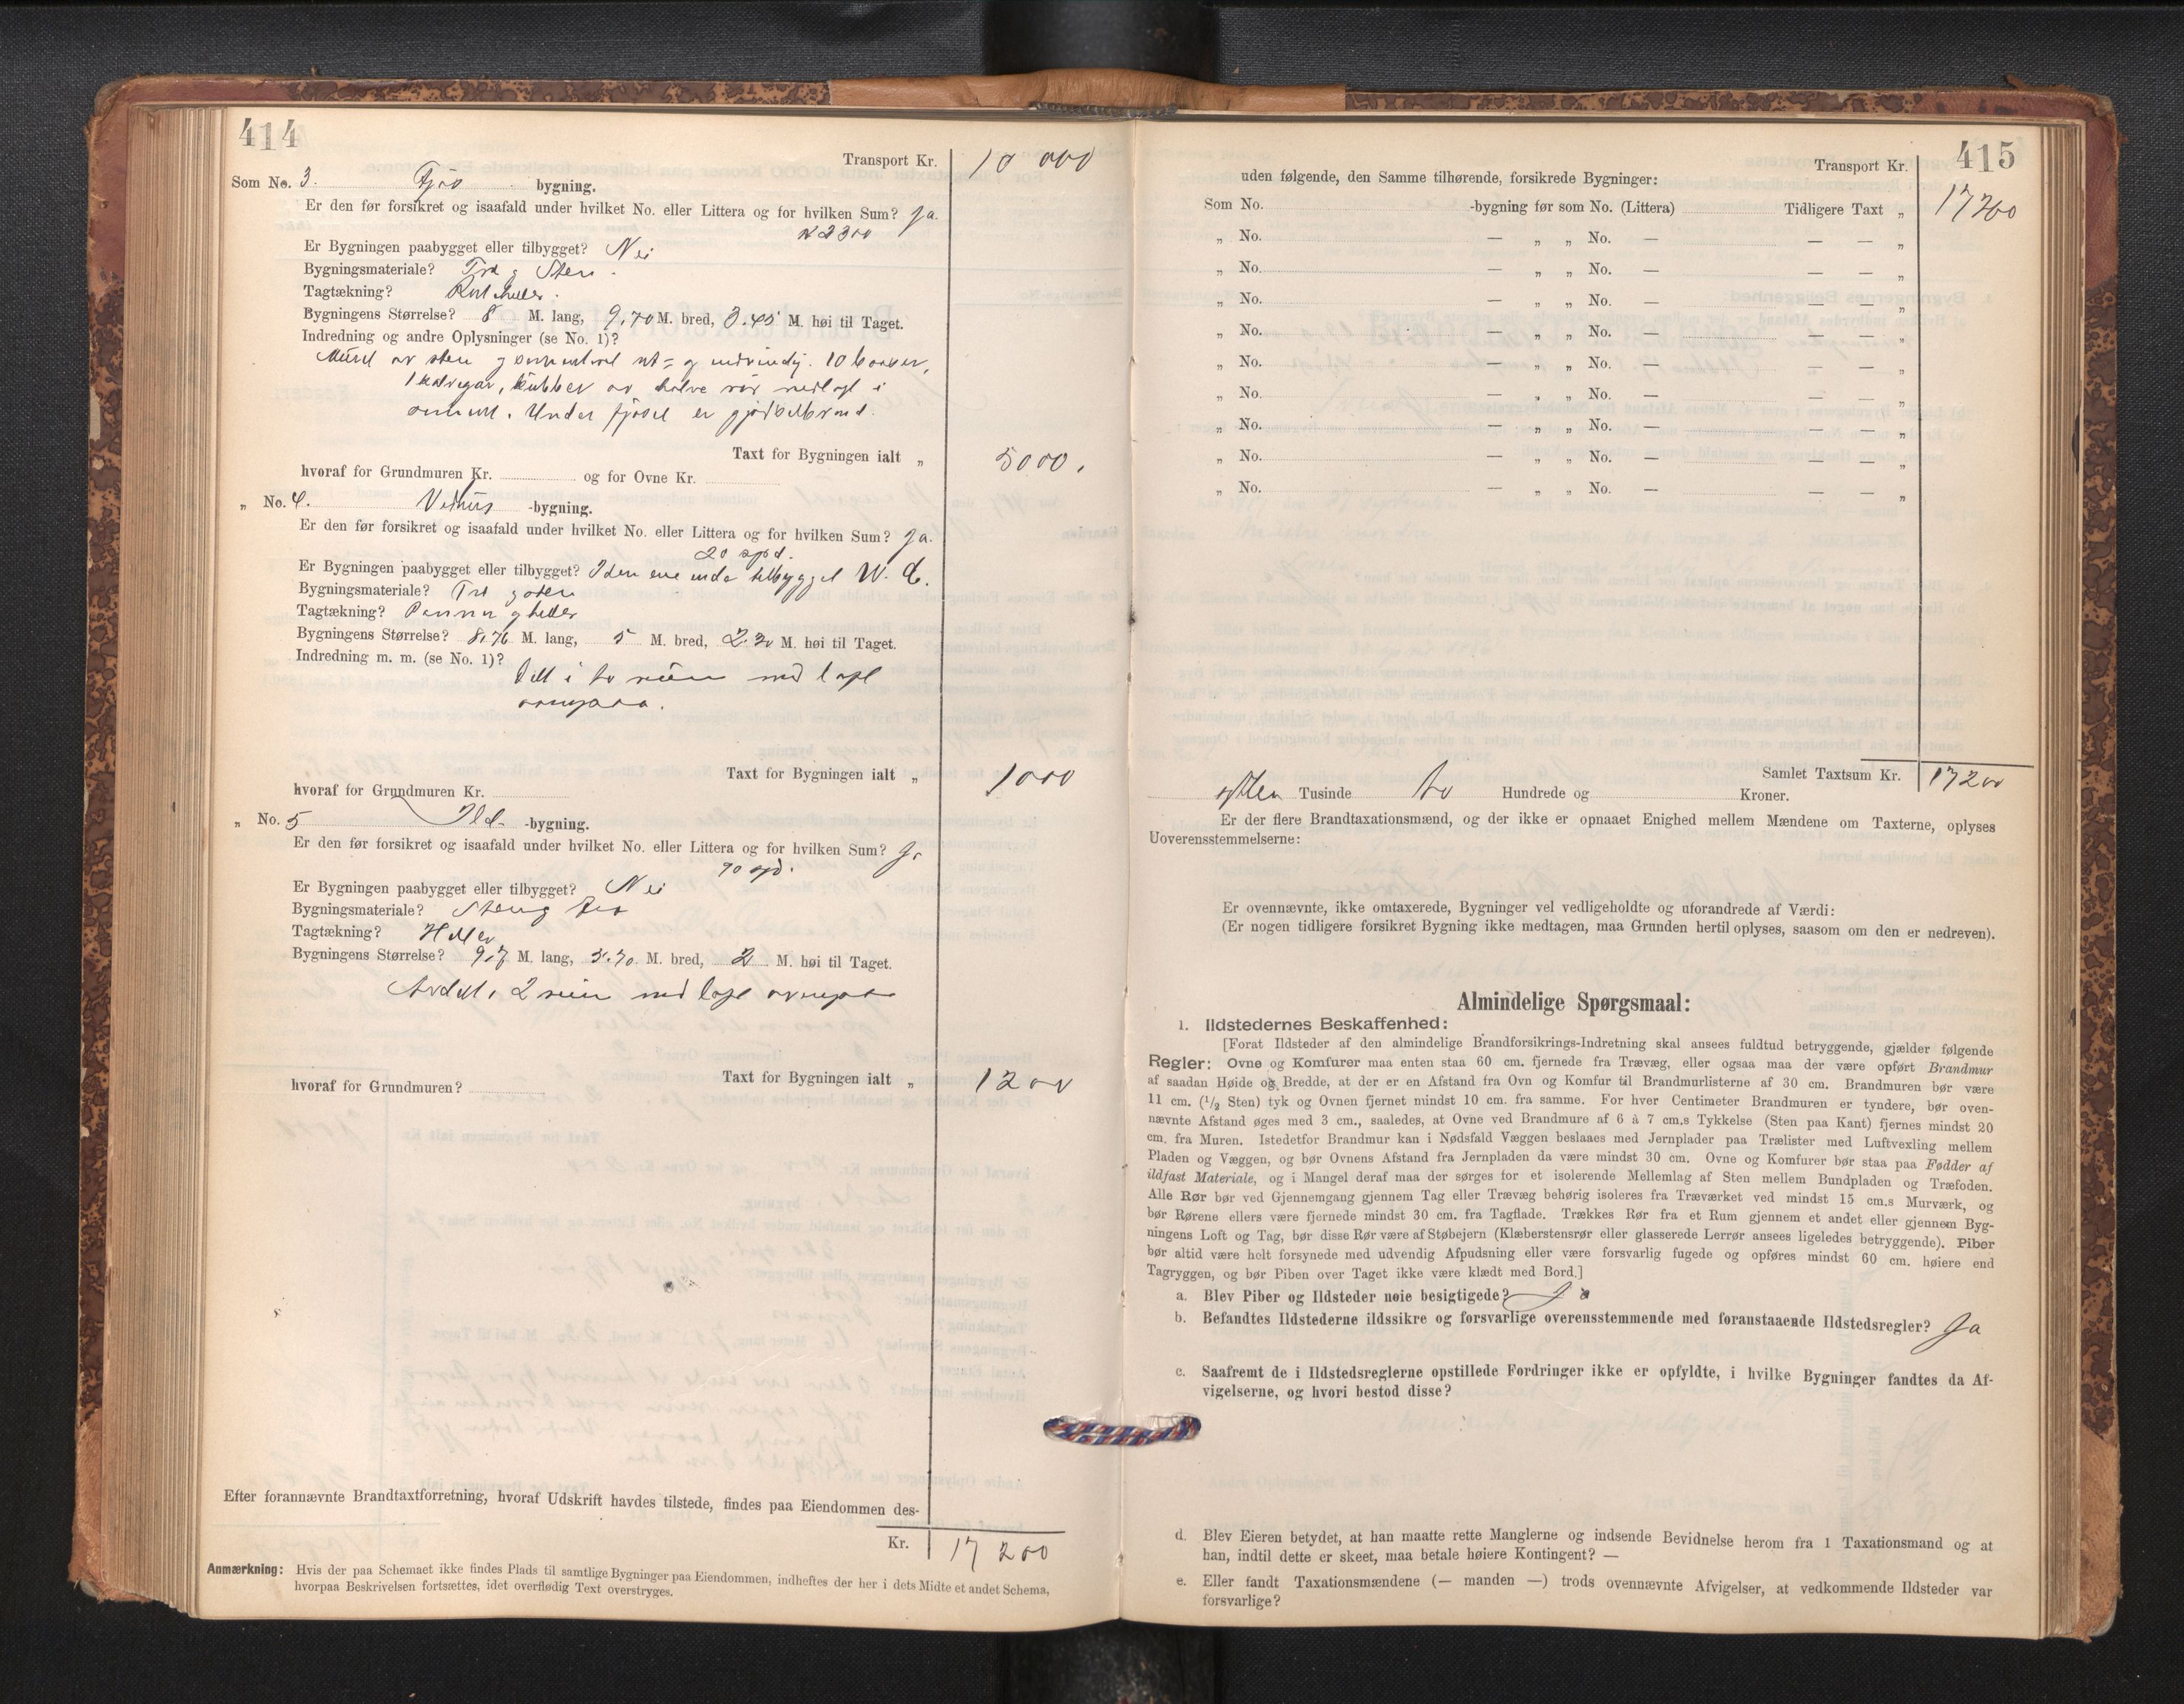 414
Transport Kr. 10 000
Som No. 3. Fjøs bygning.
Er den før forsikret og isaafald under hvilket No. eller Littera og for hvilken Sum? Ja.
2300
Er Bygningen paabygget eller tilbygget? Nei
Bygningsmateriale? Træ g Sten.
Tagtækning?
Bygningens Størrelse? 8 M. lang, 9,70 M. bred, 3.45 M. høi til Taget.
Indredning og andre Oplysninger (se No. 1)?
av sten g ut= g indvendig. 10 baaser,
1 av halve rør nedlagt i
Under fjøset er
Taxt for Bygningen ialt „ 5000.
hvoraf for Grundmuren Kr. og for Ovne Kr.
„ No. 4. Vedhus -bygning.
Er den før forsikret og isaafald under hvilket No. eller Littera og for hvilken Sum? Ja.
20 spd.
Er Bygningen paabygget eller tilbygget? I den ene ende tilbygget W. C.
Bygningsmateriale? Træ g sten
Tagtækning? Panner g heller
Bygningens Størrelse? 8,76 M. lang, 5 M. bred, 2.30 M. høi til Taget.
Indredning m. m. (se No. 1)?
Delt i to rum med loft
ovenpaa.
Taxt for Bygningen ialt „ 1000
hvoraf for Grundmuren Kr.
„ No. 5 Ild- -bygning.
Er den før forsikret og isaafald under hvilket No. eller Littera og for hvilken Sum? Ja
90 spd.
Er Bygningen paabygget eller tilbygget? Nei
Bygningsmateriale? Sten g træ
Tagtækning? Heller
Bygningens Størrelse? 9,7 M. lang, 5.70 M. bred, 2 M. høi til Taget.
Avdelt i 2 rum med loft ovenpaa
Taxt for Bygningen ialt „ 1200
hvoraf for Grundmuren?
Efter forannævnte Brandtaxtforretning, hvoraf Udskrift havdes tilstede, findes paa Eiendommen des-
Kr. 17 200
Anmærkning: Hvis der paa Schemaet ikke findes Plads til samtlige Bygninger paa Eiendommen, indheftes der her i dets Midte et andet Schema,
hvorpaa Beskrivelsen fortsættes, idet overflødig Text overstryges.
415
Transport Kr. 17200
uden følgende, den Samme tilhørende, forsikrede Bygninger:
Som No. -bygning før som No. (Littera) Tidligere Taxt „
„ No. — „ „ No. — — — „
„ No. — „ „ No. — — — „
„ No. — „ „ No. — — — „
„ No. — „ „ No. — — — „
„ No. — „ „ No. — — — „
„ No. — „ „ No. — — — „
„ No. — „ „ No. — — — „
„ No. — „ „ No. — — — „
„ No. — „ „ No. — — — „
Samlet Taxtsum Kr. 17200
sytten Tusinde to Hundrede og Kroner.
Er der flere Brandtaxationsmænd, og der ikke er opnaaet Enighed mellem Mændene om Taxterne, oplyses
Uoverensstemmelserne:
Er ovennævnte, ikke omtaxerede, Bygninger vel vedligeholdte og uforandrede af Værdi:
(Er nogen tidligere forsikret Bygning ikke medtagen, maa Grunden hertil oplyses, saasom om den er nedreven).
Almindelige Spørgsmaal:
1. Ildstedernes Beskaffenhed:
[Forat Ildsteder af den almindelige Brandforsikrings-Indretning skal ansees fuldtud betryggende, gjælder følgende
Regler: Ovne og Komfurer maa enten staa 60 cm. fjernede fra Trævæg, eller ogsaa maa der være opført Brandmur
af saadan Høide og Bredde, at der er en Afstand fra Ovn og Komfur til Brandmurlisterne af 30 cm. Brandmuren bør være
11 cm. (1/2 Sten) tyk og Ovnen fjernet mindst 10 cm. fra samme. For hver Centimeter Brandmuren er tyndere, bør oven-
nævnte Afstand øges med 3 cm., saaledes, at Ovne ved Brandmure af 6 à 7 cm.s Tykkelse (Sten paa Kant) fjernes mindst 20
cm. fra Muren. Istedetfor Brandmur kan i Nødsfald Væggen beslaaes med Jernplader paa Trælister med Luftvexling mellem
Pladen og Væggen, og bør Ovnens Afstand fra Jernpladen da være mindst 30 cm. Ovne og Komfurer bør staa paa Fødder af
ildfast Materiale, og i Mangel deraf maa der sørges for et isolerende Mellemlag af Sten mellem Bundpladen og Træfoden.
Alle Rør bør ved Gjennemgang gjennem Tag eller Trævæg behørig isoleres fra Træværket ved mindst 15 cm.s Murværk, og
bør Rørene ellers være fjernede mindst 30 cm. fra Tagflade. Trækkes Rør fra et Rum gjennem et andet eller gjennem Byg-
ningens Loft og Tag, bør disse Rør være af Støbejern (Klæberstensrør eller glasserede Lerrør ansees ligeledes betryggende). Piber
bør altid være holt forsynede med udvendig Afpudsning eller være forsvarlig fugede og opføres mindst 60 cm. høiere end
Tagryggen, og bør Piben over Taget ikke være klædt med Bord.]
a. Blev Piber og Ildsteder nøie besigtigede? Ja
b. Befandtes Ildstederne ildssikre og forsvarlige overensstemmende med foranstaaende Ildstedsregler? Ja
c. Saafremt de i Ildstedsreglerne opstillede Fordringer ikke er opfyldte, i hvilke Bygninger fandtes da Af-
vigelserne, og hvori bestod disse?
d. Blev Eieren betydet, at han maatte rette Manglerne og indsende Bevidnelse herom fra 1 Taxationsmand og at
han, indtil dette er skeet, maa betale høiere Kontingent? —
e. Eller fandt Taxationsmændene (— manden —) trods ovennævnte Afvigelser, at vedkommende Ildsteder var
forsvarlige?